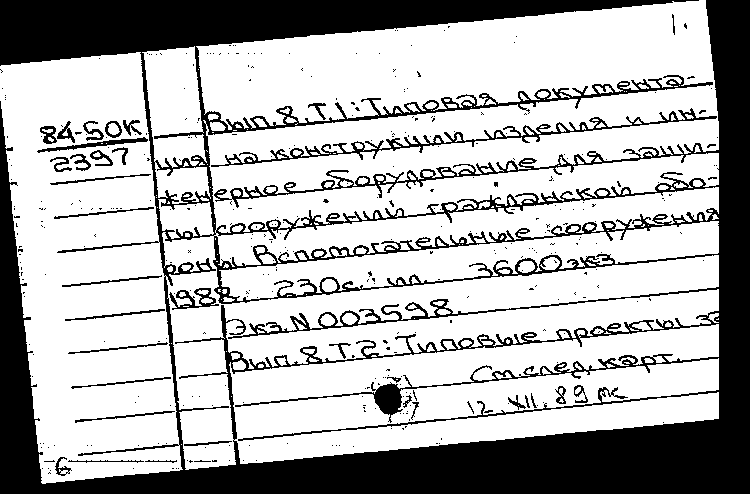 1.
84-50К
2397
Вып.8.Т.1: Типовая документа-
ция на конструкции, изделия и ин-
женерное оборудование для защи-
ты сооружений гражданской обо-
роны. Вспомогательные сооружения
1988. 230с.: ил. 3600экз.
Экз.N 003598.
Вып.8.Т.2: Типовые проекты за
См.след.карт.
12.XII.89
6